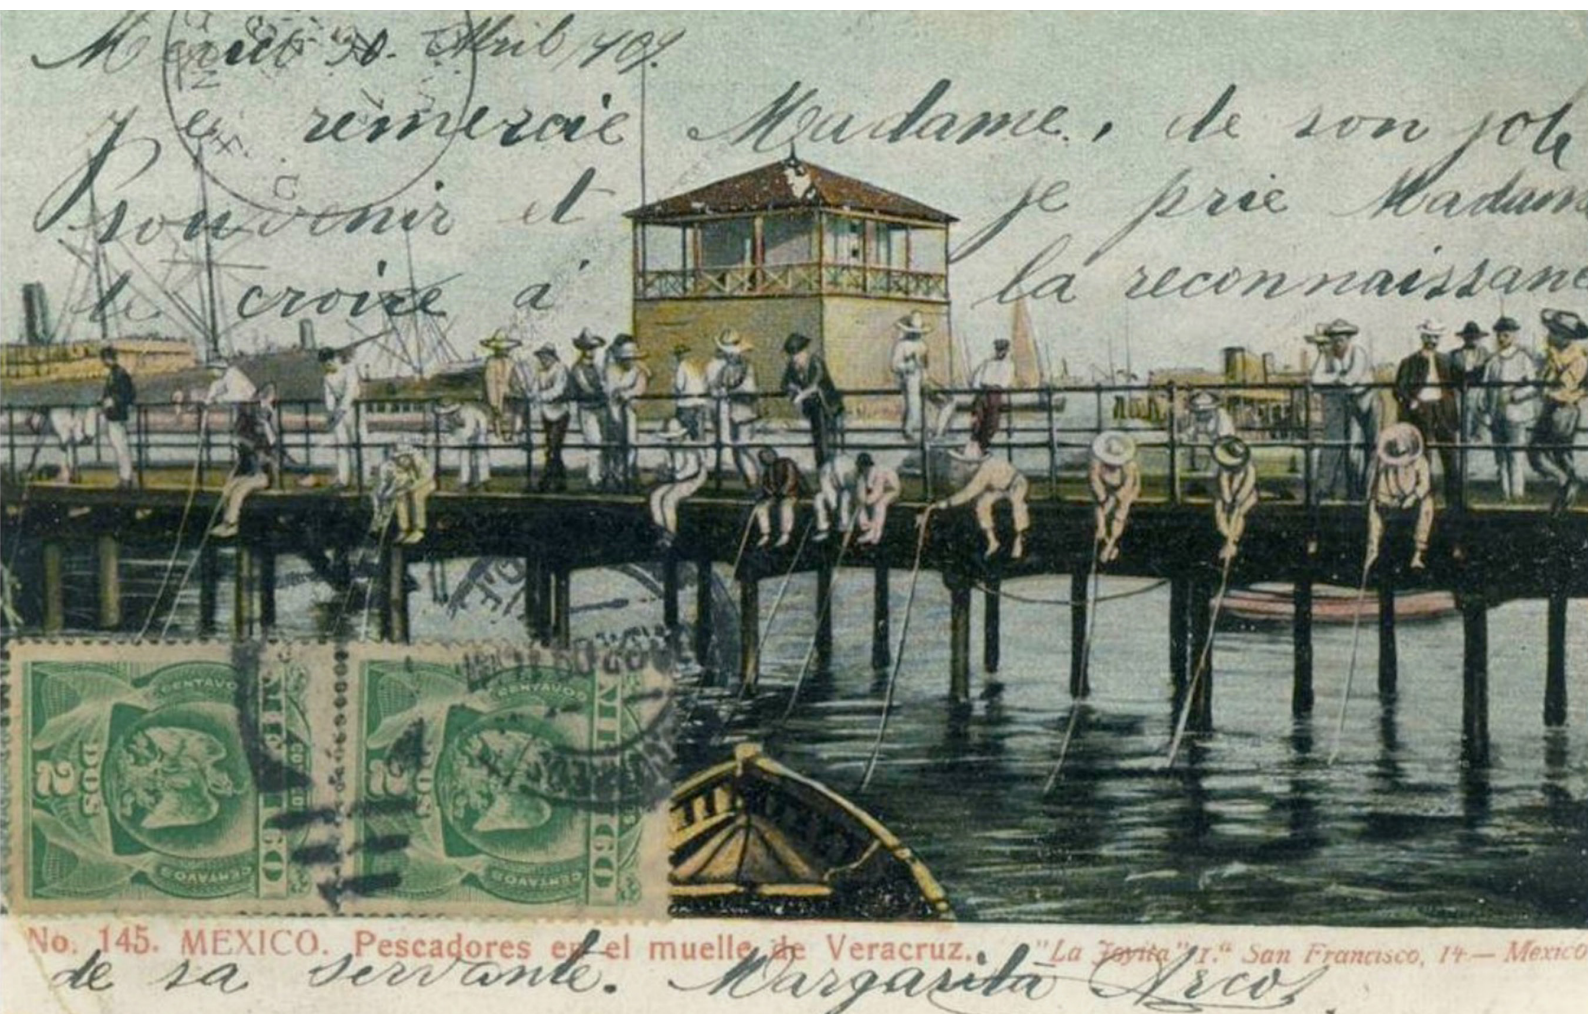 Mexico 30. Abril/909.
Je remercie Madame, de son joli
souvenir et je prie Madame
de croire à la reconnaissance
CENTAVOS
CENTAVOS
DOS
2
DOS
2
CENTAVOS
CENTAVOS
No. 145. MEXICO. Pescadores en el muelle de Veracruz. "La Joyita" 1.ª San Francisco, 14 — Mexico
de sa servante. Margarita Arcos